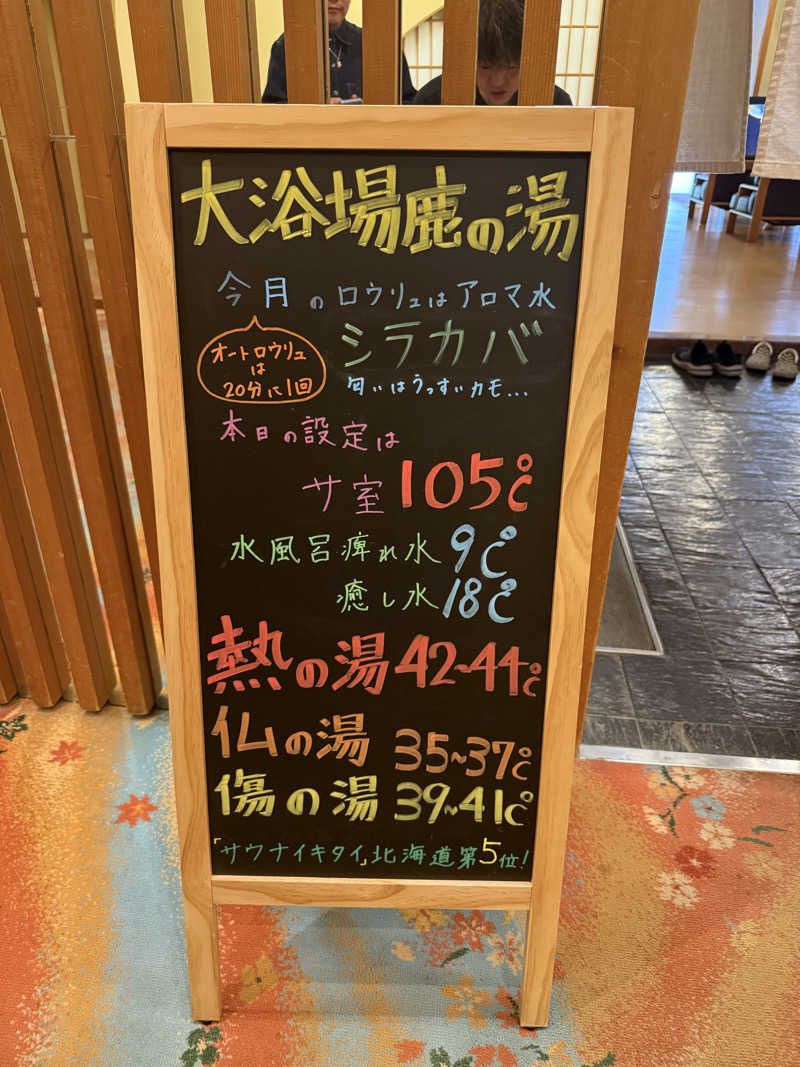 大浴場鹿の湯
今月のロウリュはアロマ水
オートロウリュ
は
20分に1回
シラカバ
匂いはうっすいカモ...
本日の設定は
サ室 105℃
水風呂痺れ水 9℃
癒し水 18℃
熱の湯 42~44℃
仏の湯 35~37℃
傷の湯 39~41℃
「サウナイキタイ」北海道第5位!